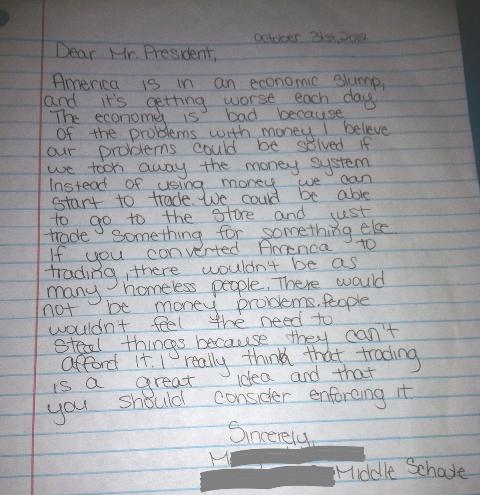 october 31st, 2012
Dear Mr. President,
America is in an economic slump,
and it's getting worse each day.
The economy is bad because
of the problems with money. I believe
our problems could be solved if
we took away the money system
Instead of using money we can
start to trade. We could be able
to go to the store and just
trade something for something else.
If you converted America to
trading, there wouldn't be as
many homeless people. There would
not be money problems. People
wouldn't feel the need to
steal things because they can't
afford it. I really think that trading
is a great idea and that
you should consider enforcing it.
Sincerely,
M
Middle Schoole